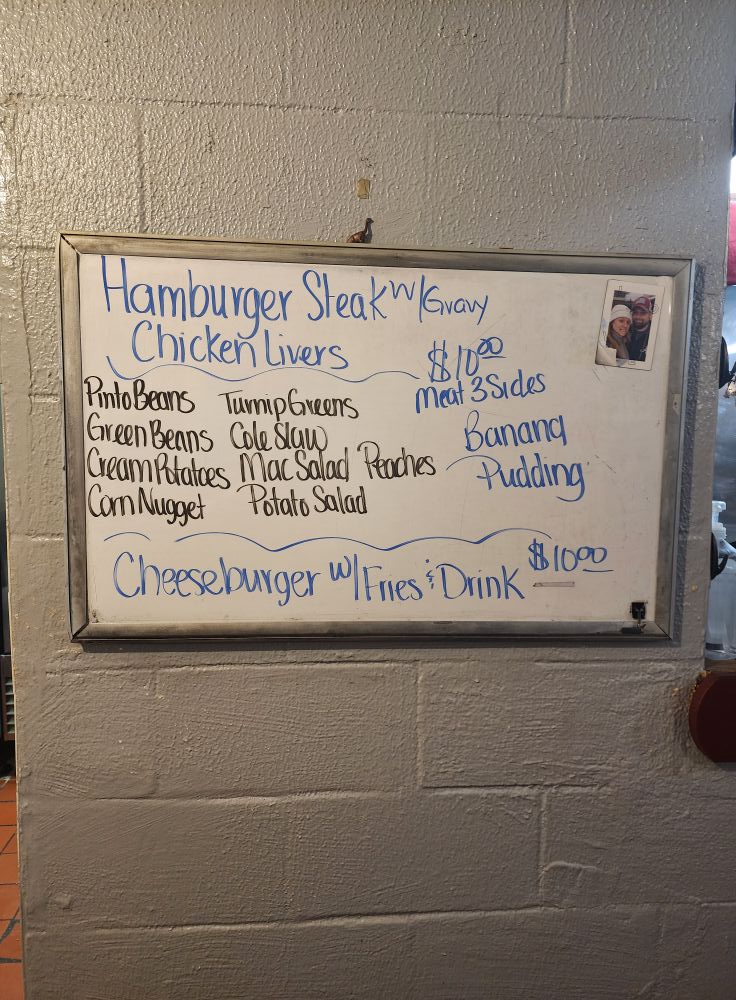 Hamburger Steak w/Gravy
Chicken Livers
$10.00
Meat 3 Sides
Pinto Beans Turnip Greens
Green Beans Cole Slaw
Cream Potatoes Mac Salad Peaches
Corn Nugget Potato Salad
Banana
Pudding
Cheeseburger w/Fries & Drink $10.00